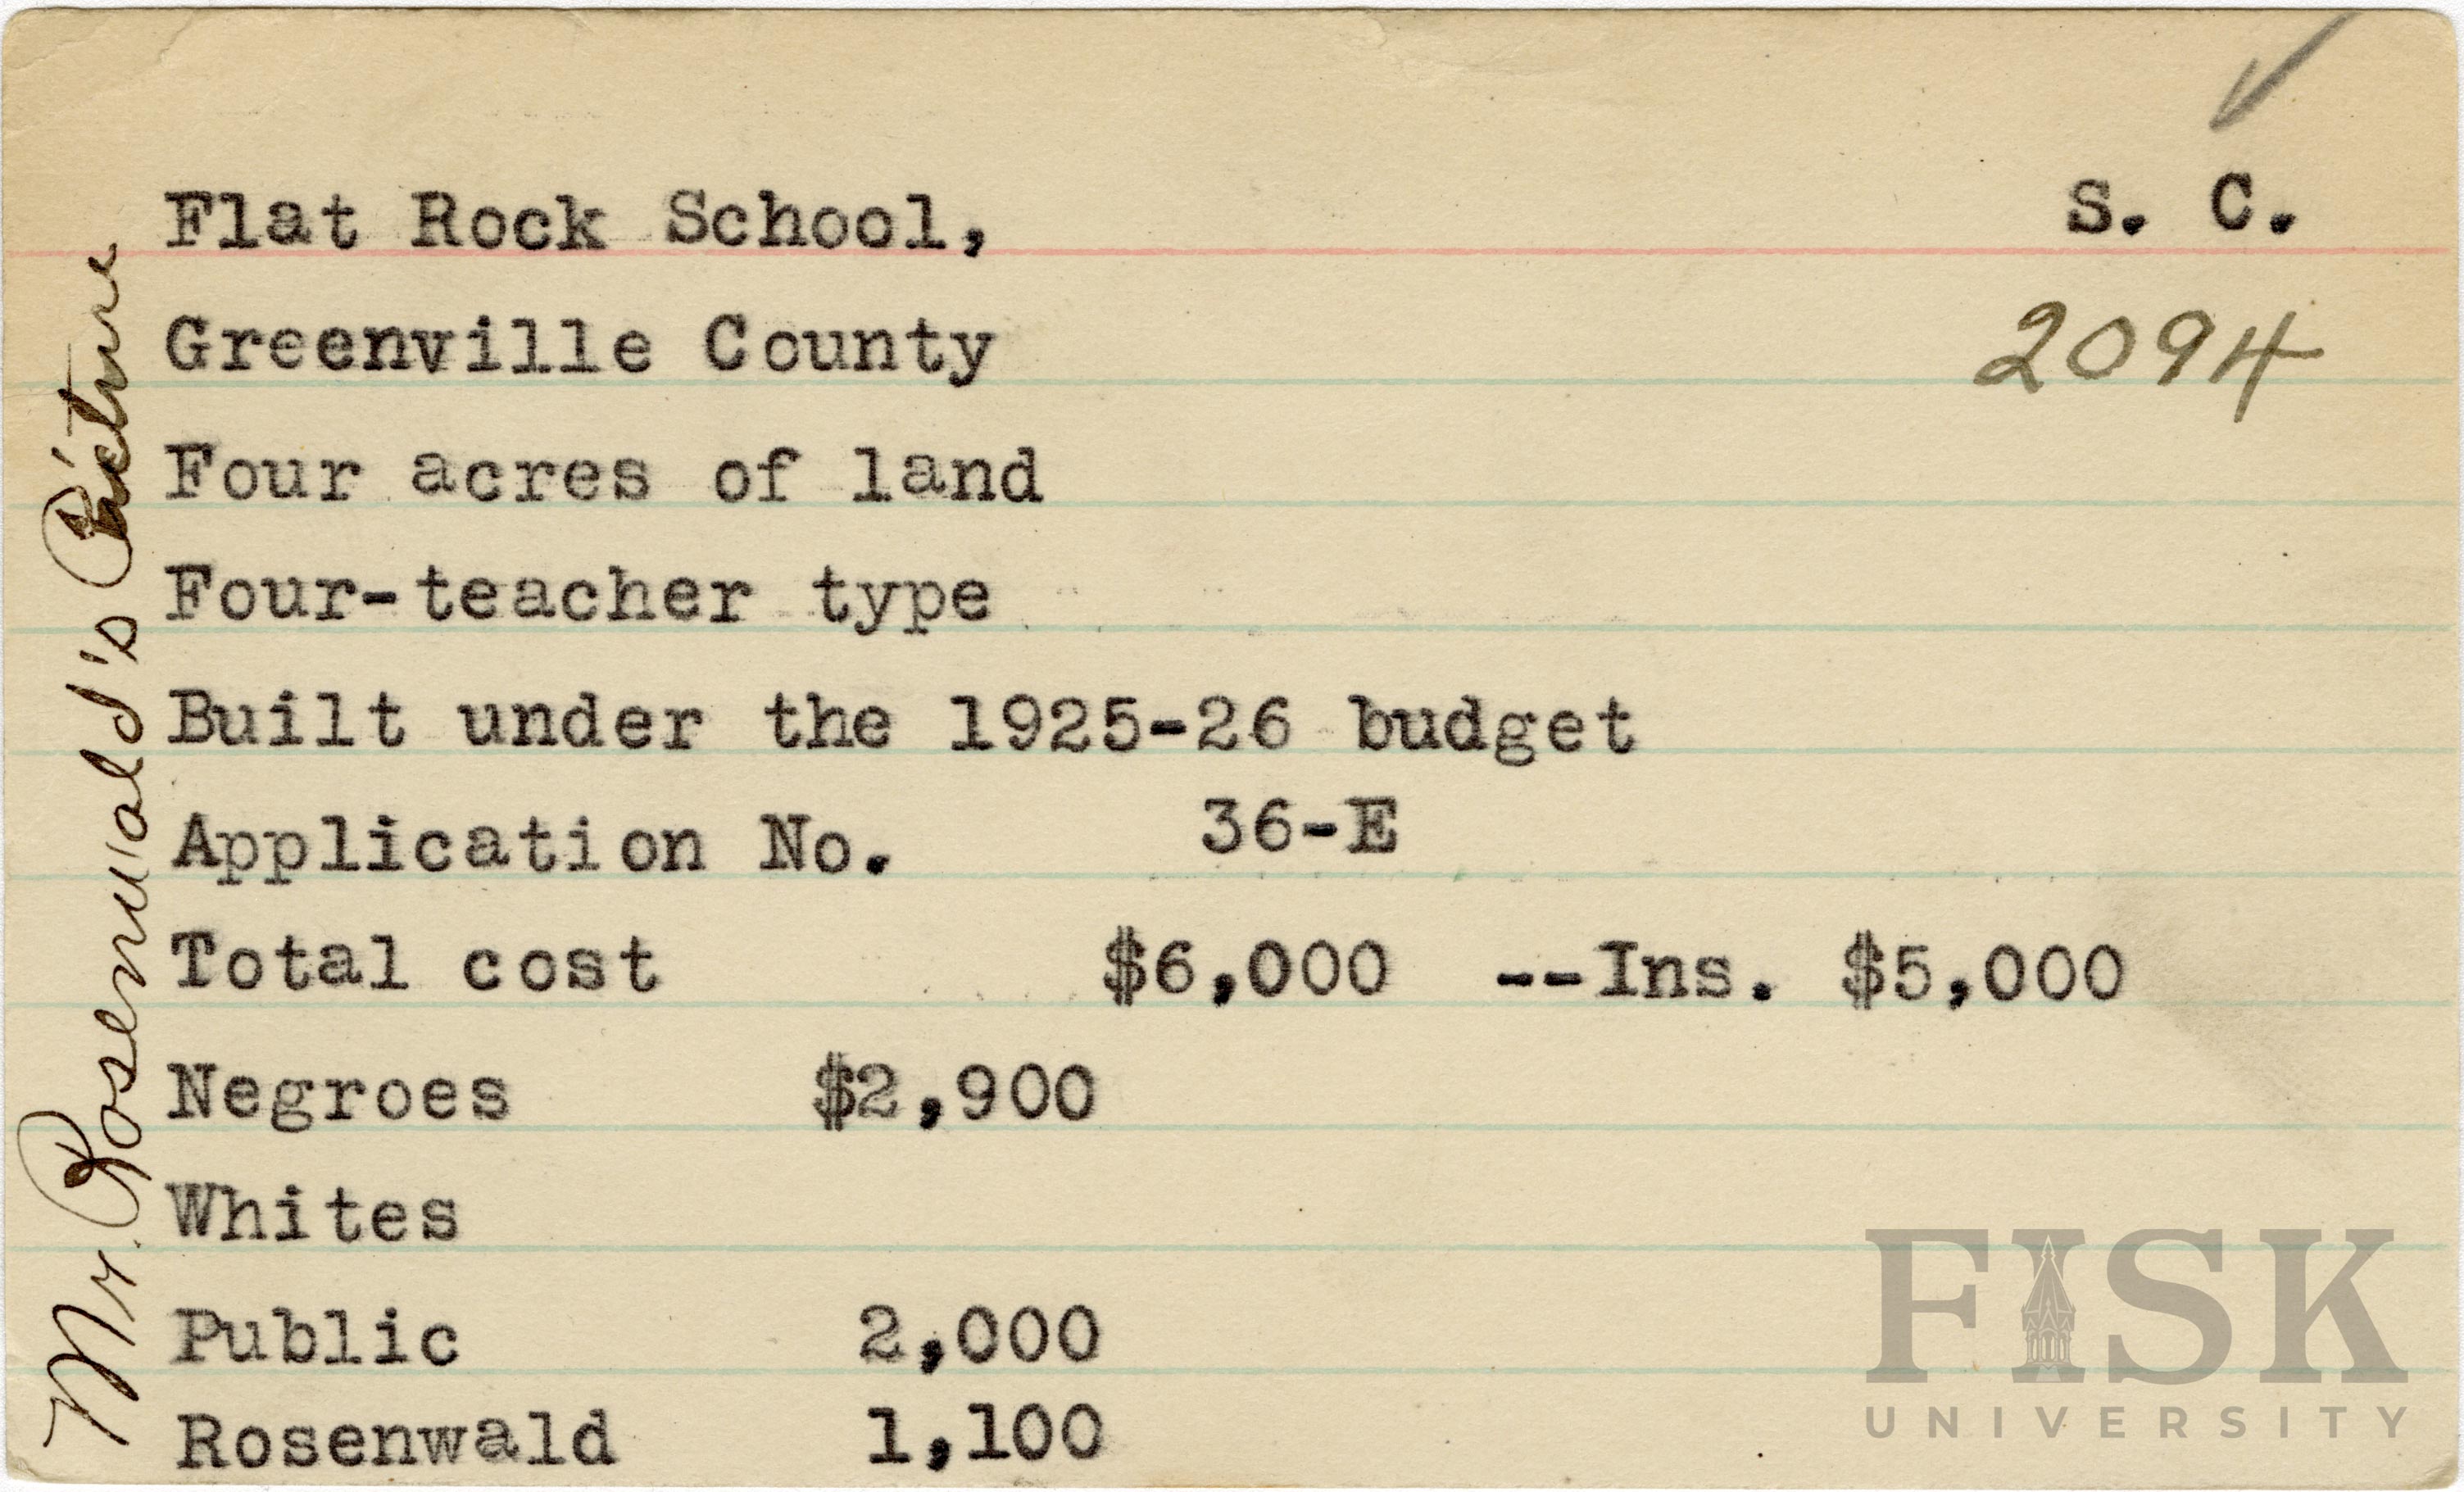 Flat Rock School, S. C.
Greenville County 2094
Four acres of land
Four-teacher type
Built under the 1925-26 budget
Application No. 36-E
Total cost $6,000 --Ins. $5,000
Negroes $2,900
Whites
Public 2,000
Rosenwald 1,100
Mr. Rosenwald's Picture
FISK
UNIVERSITY